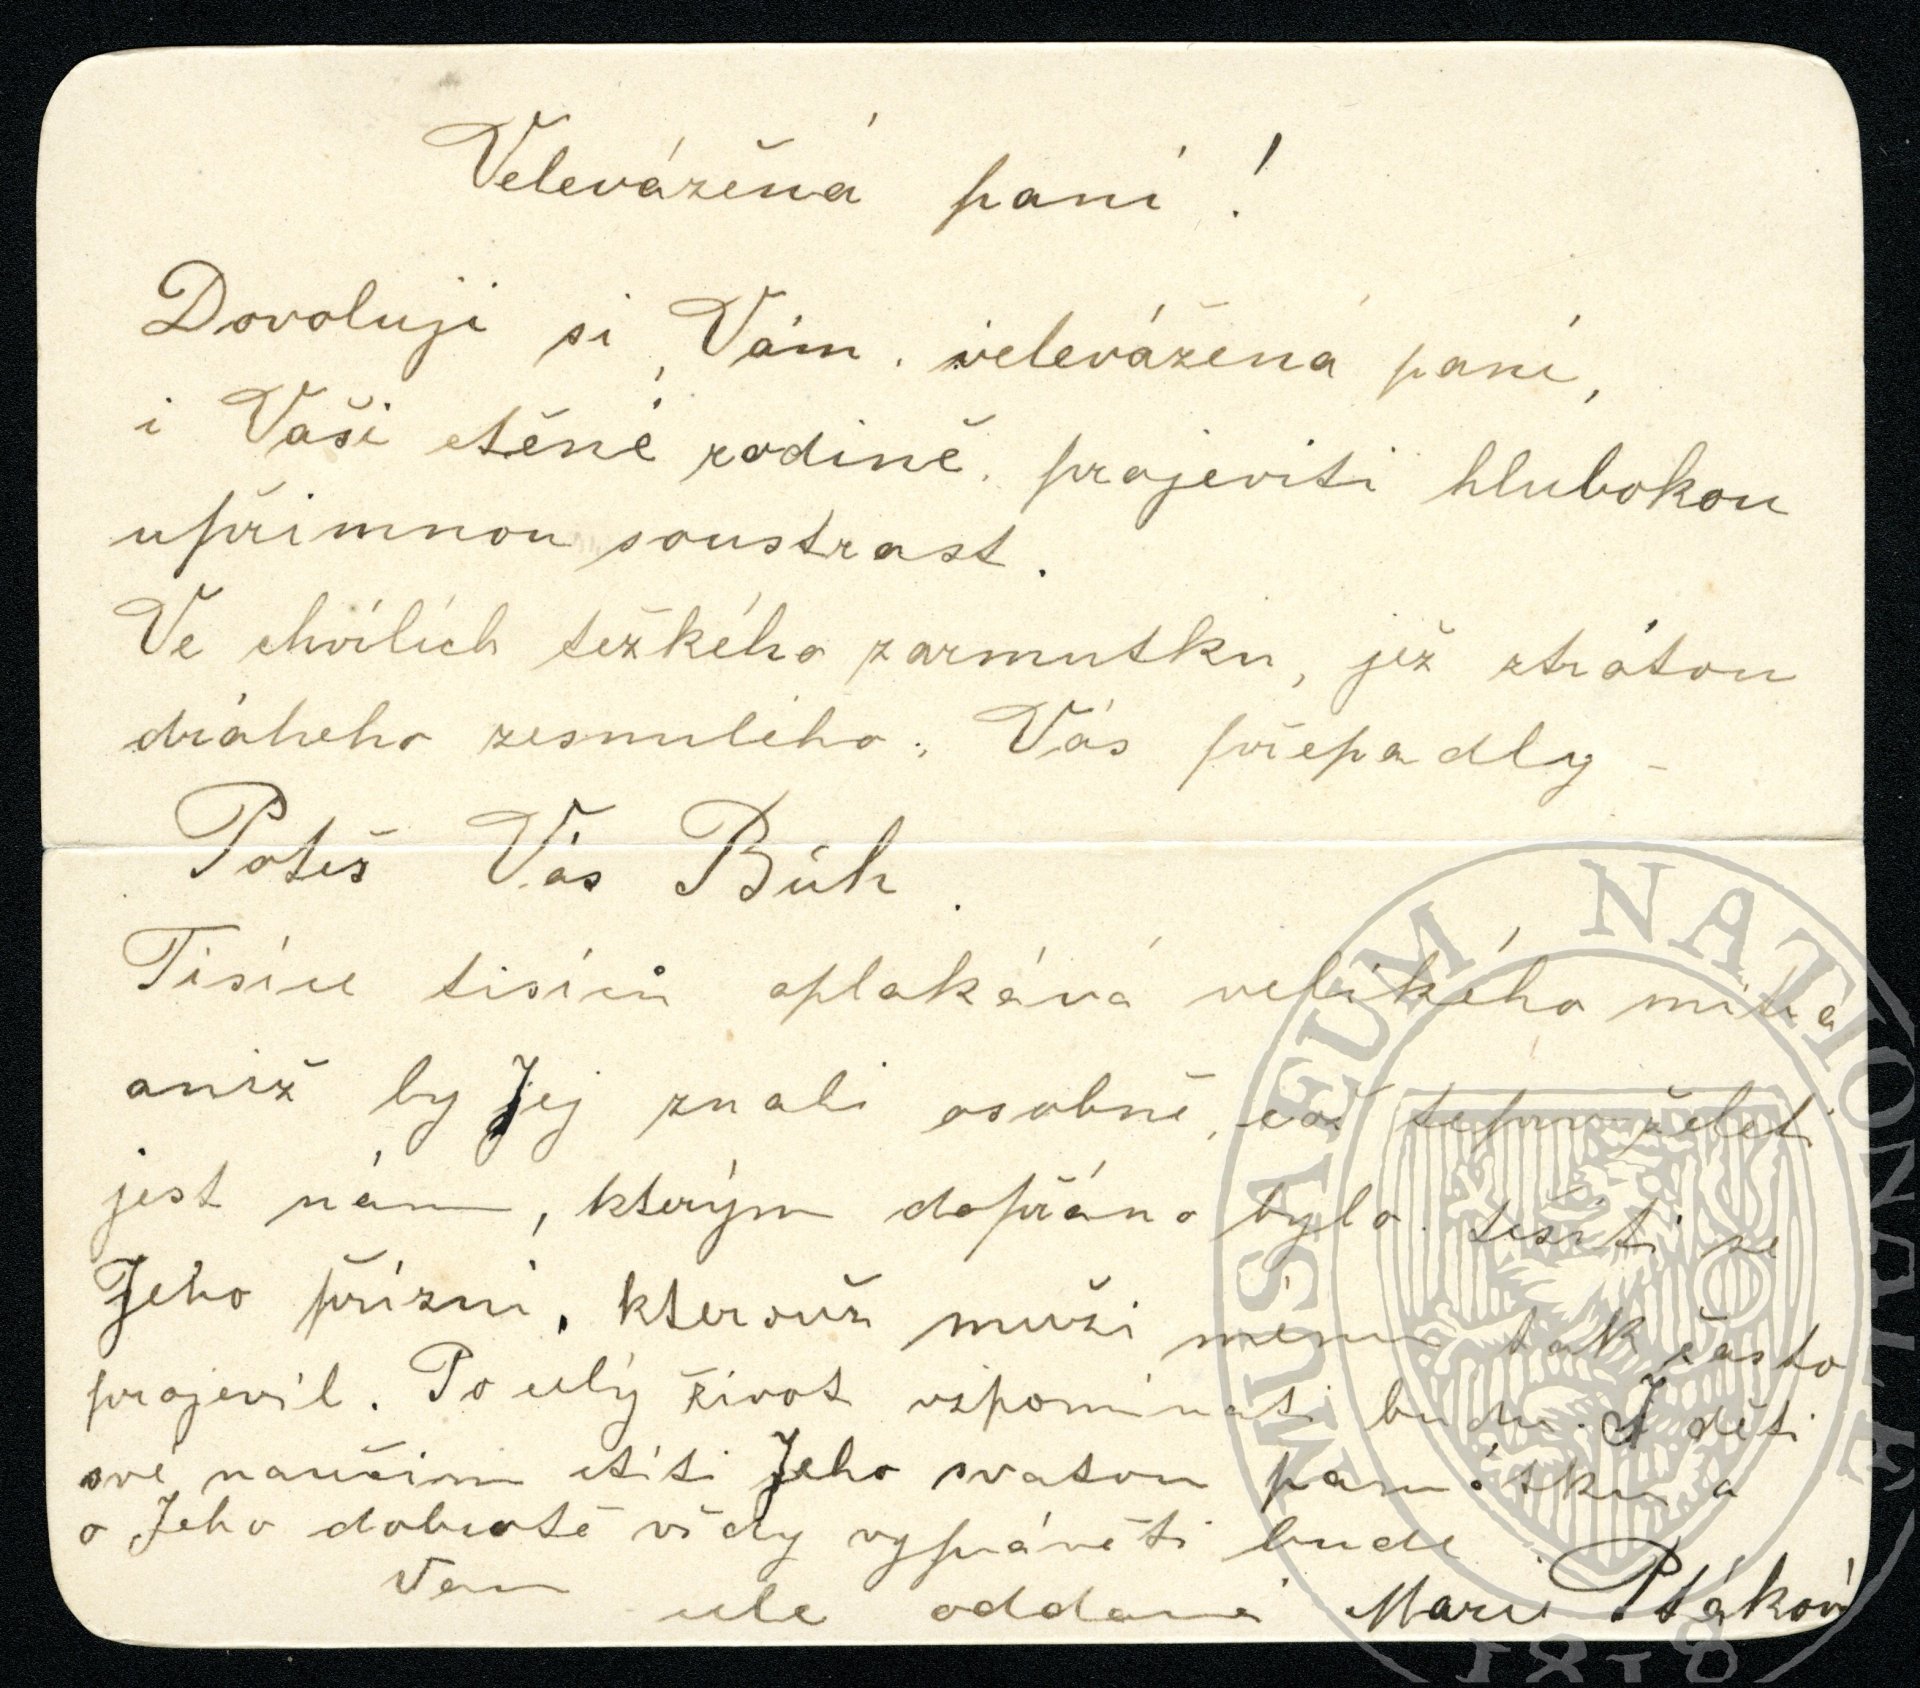 Velevážená paní!
Dovoluji si, Vám, velevážená paní,
i Vaší ctěné rodině projeviti hlubokou
upřimnou soustrast.
Ve chvílích težkého zarmutku, jež ztrátou
dráheho zesnulého, Vás přepadly –
Potěš Vás Bůh.
Tisíce tisíců oplakává velikého mistra
aniž by Jej znali osobně, což teprv želeti
jest nám, kterým dopřáno bylo těšiti se
Jeho přízni, kterouž muži mému tak často
projevil. Po celý život vzpomínati budu. I děti
své naučím ctíti Jeho svatou památku a
o Jeho dobrotě vždy vyprávěti bude
Vam
cele oddaná Marie Ptáková
MUSAEUM NATIONALE
1818